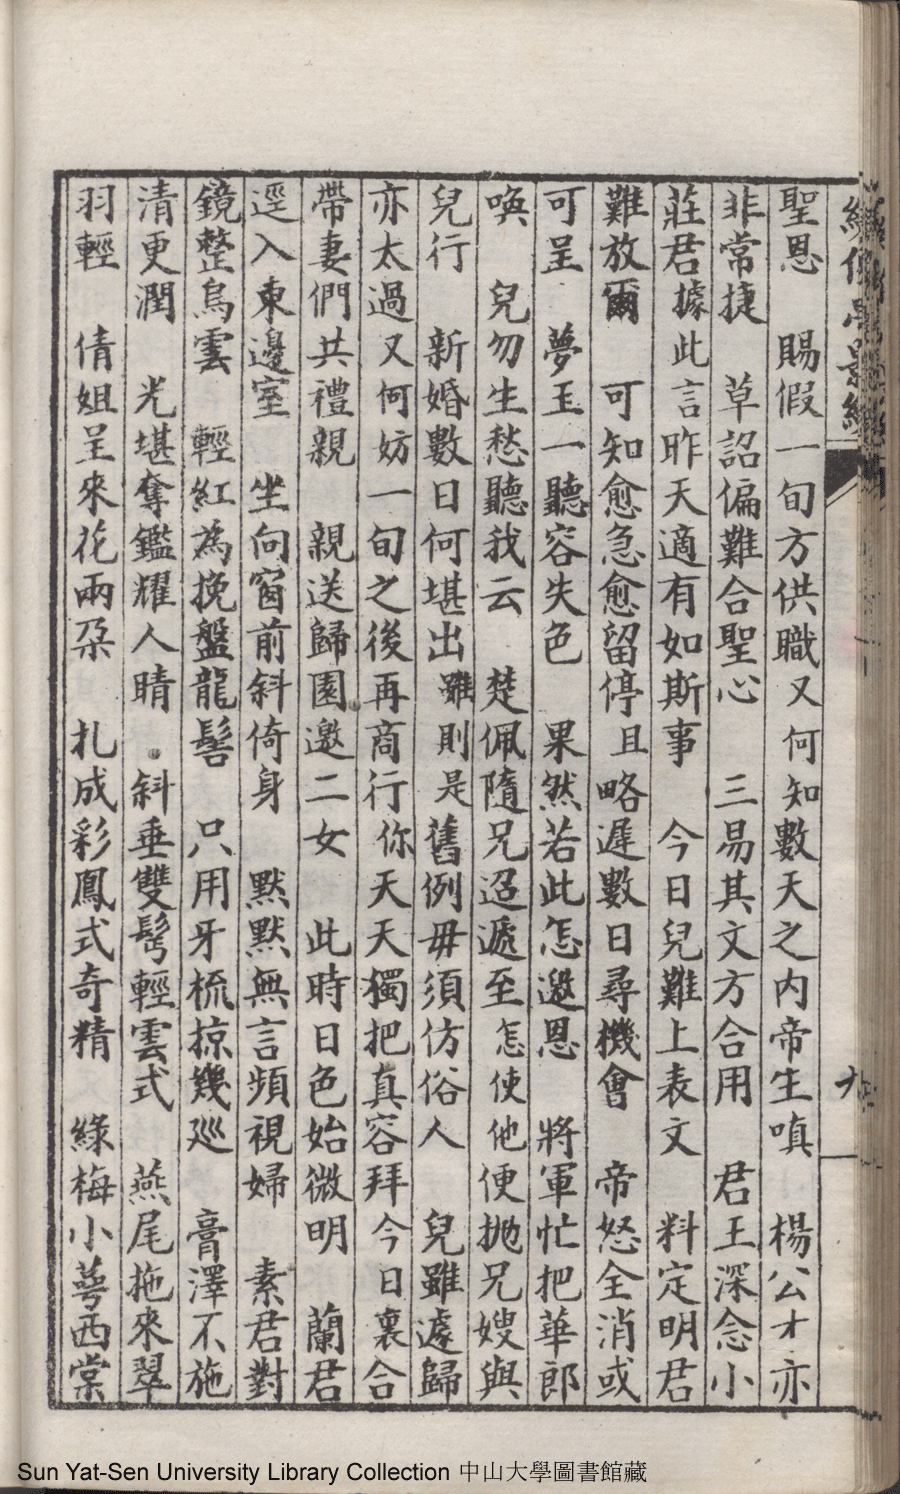 聖恩 賜假一旬方供職又何知數天之内帝生嗔 楊公才亦
非常捷 草詔偏難合聖心 三易其文方合用 君王深念小
莊君據此言昨天適有如斯事 今日兒難上表文 料定明君
難放爾 可知愈急愈留停且略遲數日尋機會 帝怒全消或
可呈 夢玉一聽容失色 果然若此怎邀恩 將軍忙把華郎
喚 兒勿生愁聽我云 楚佩隨兄迢遞至怎使他便拋兄嫂與
兒行 新婚數日何堪出雖則是舊例毋須仿俗人 兒雖遽歸
亦太過又何妨一旬之後再商行你天天獨把真容拜今日裏合
帶妻們共禮親 親送歸園邀二女 此時日色始微明 蘭君
逕入東邊室 坐向窗前斜倚身 默默無言頻視婦 素君對
鏡整烏雲 輕紅為挽盤龍髻 只用牙梳掠幾巡 膏澤不施
清更潤 光堪奪鑑耀人睛 斜垂雙髩輕雲式 燕尾拖來翠
羽輕 倩姐呈來花兩朶 扎成彩鳳式奇精 綠梅小萼西棠
九
Sun Yat-Sen University Library Collection 中山大學圖書館藏